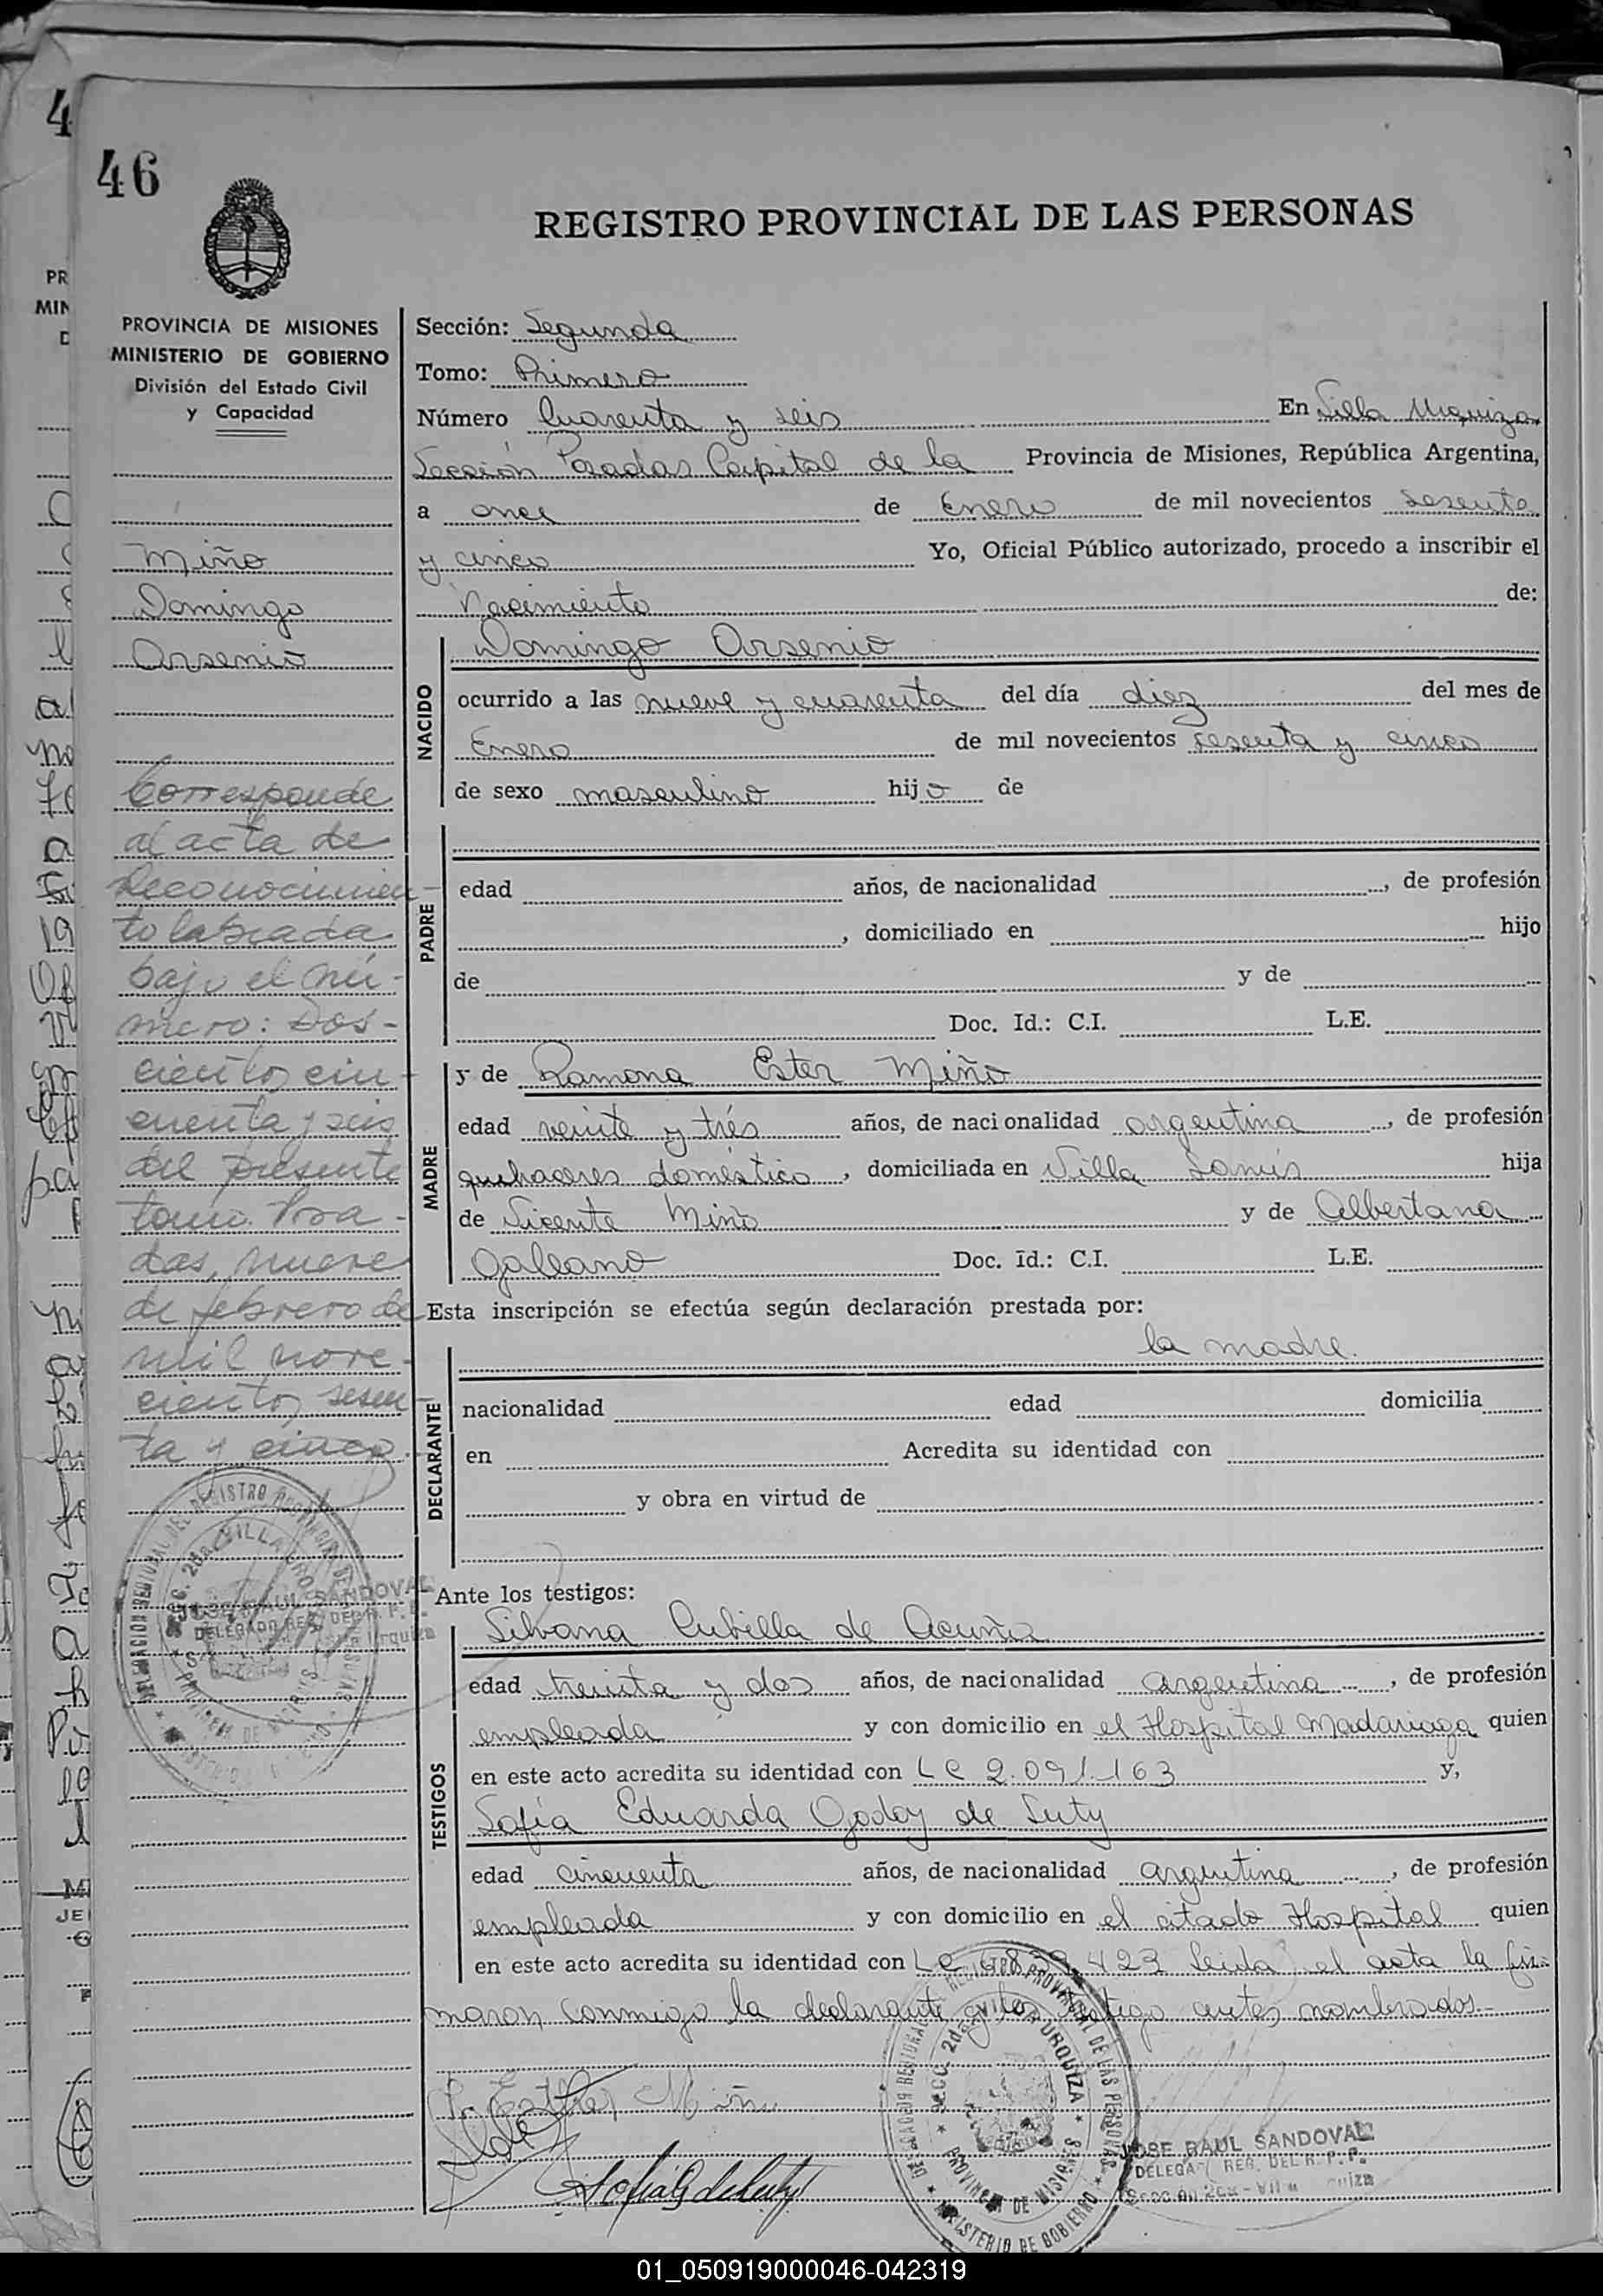 46
REGISTRO PROVINCIAL DE LAS PERSONAS
PROVINCIA DE MISIONES
MINISTERIO DE GOBIERNO
División del Estado Civil
y Capacidad
Miño
Domingo
Arsenio
Corresponde
al acta de
Reconocimien-
to labrada
bajo el nú-
mero: Dos-
cientos cin-
cuenta y seis
del presente
tomo. Posa-
das, nueve
de febrero de
mil nove-
cientos sesen-
ta y cinco.
Sección: Segunda
Tomo: Primero
Número Cuarenta y seis En Villa Urquiza
Sección Posadas Capital de la Provincia de Misiones, República Argentina,
a once de Enero de mil novecientos sesenta
y cinco Yo, Oficial Público autorizado, procedo a inscribir el
Nacimiento de:
NACIDO
Domingo Arsenio
ocurrido a las nueve y cuarenta del día diez del mes de
Enero de mil novecientos sesenta y cinco
de sexo masculino hijo de
PADRE
edad años, de nacionalidad , de profesión
, domiciliado en hijo
de y de
Doc. Id.: C.I. L.E.
MADRE
y de Ramona Ester Miño
edad veinte y trés años, de nacionalidad argentina , de profesión
quehaceres doméstico , domiciliada en Villa Lanús hija
de Vicente Miño y de Albertana
Galeano Doc. Id.: C.I. L.E.
Esta inscripción se efectúa según declaración prestada por:
DECLARANTE
la madre.
nacionalidad edad domicilia
en Acredita su identidad con
y obra en virtud de
Ante los testigos:
TESTIGOS
Silvana Cubilla de Acuña
edad treinta y dos años, de nacionalidad argentina , de profesión
empleada y con domicilio en el Hospital Madariaga quien
en este acto acredita su identidad con LC 2.091.163 y,
Sofía Eduarda Godoy de Suty
edad cincuenta años, de nacionalidad argentina , de profesión
empleada y con domicilio en el citado Hospital quien
en este acto acredita su identidad con LC 423 leida el acta la fir-
maron conmigo la declarante y los testigo antes nombrados.-
JOSE RAUL SANDOVAL
DELEGADO REG. DEL R. P. P.
SECC. 2da. VILLA URQUIZA
PROVINCIA DE MISIONES
MINISTERIO DE GOBIERNO
JOSE RAUL SANDOVAL
REG. DEL R. P. P.
01_050919000046-042319